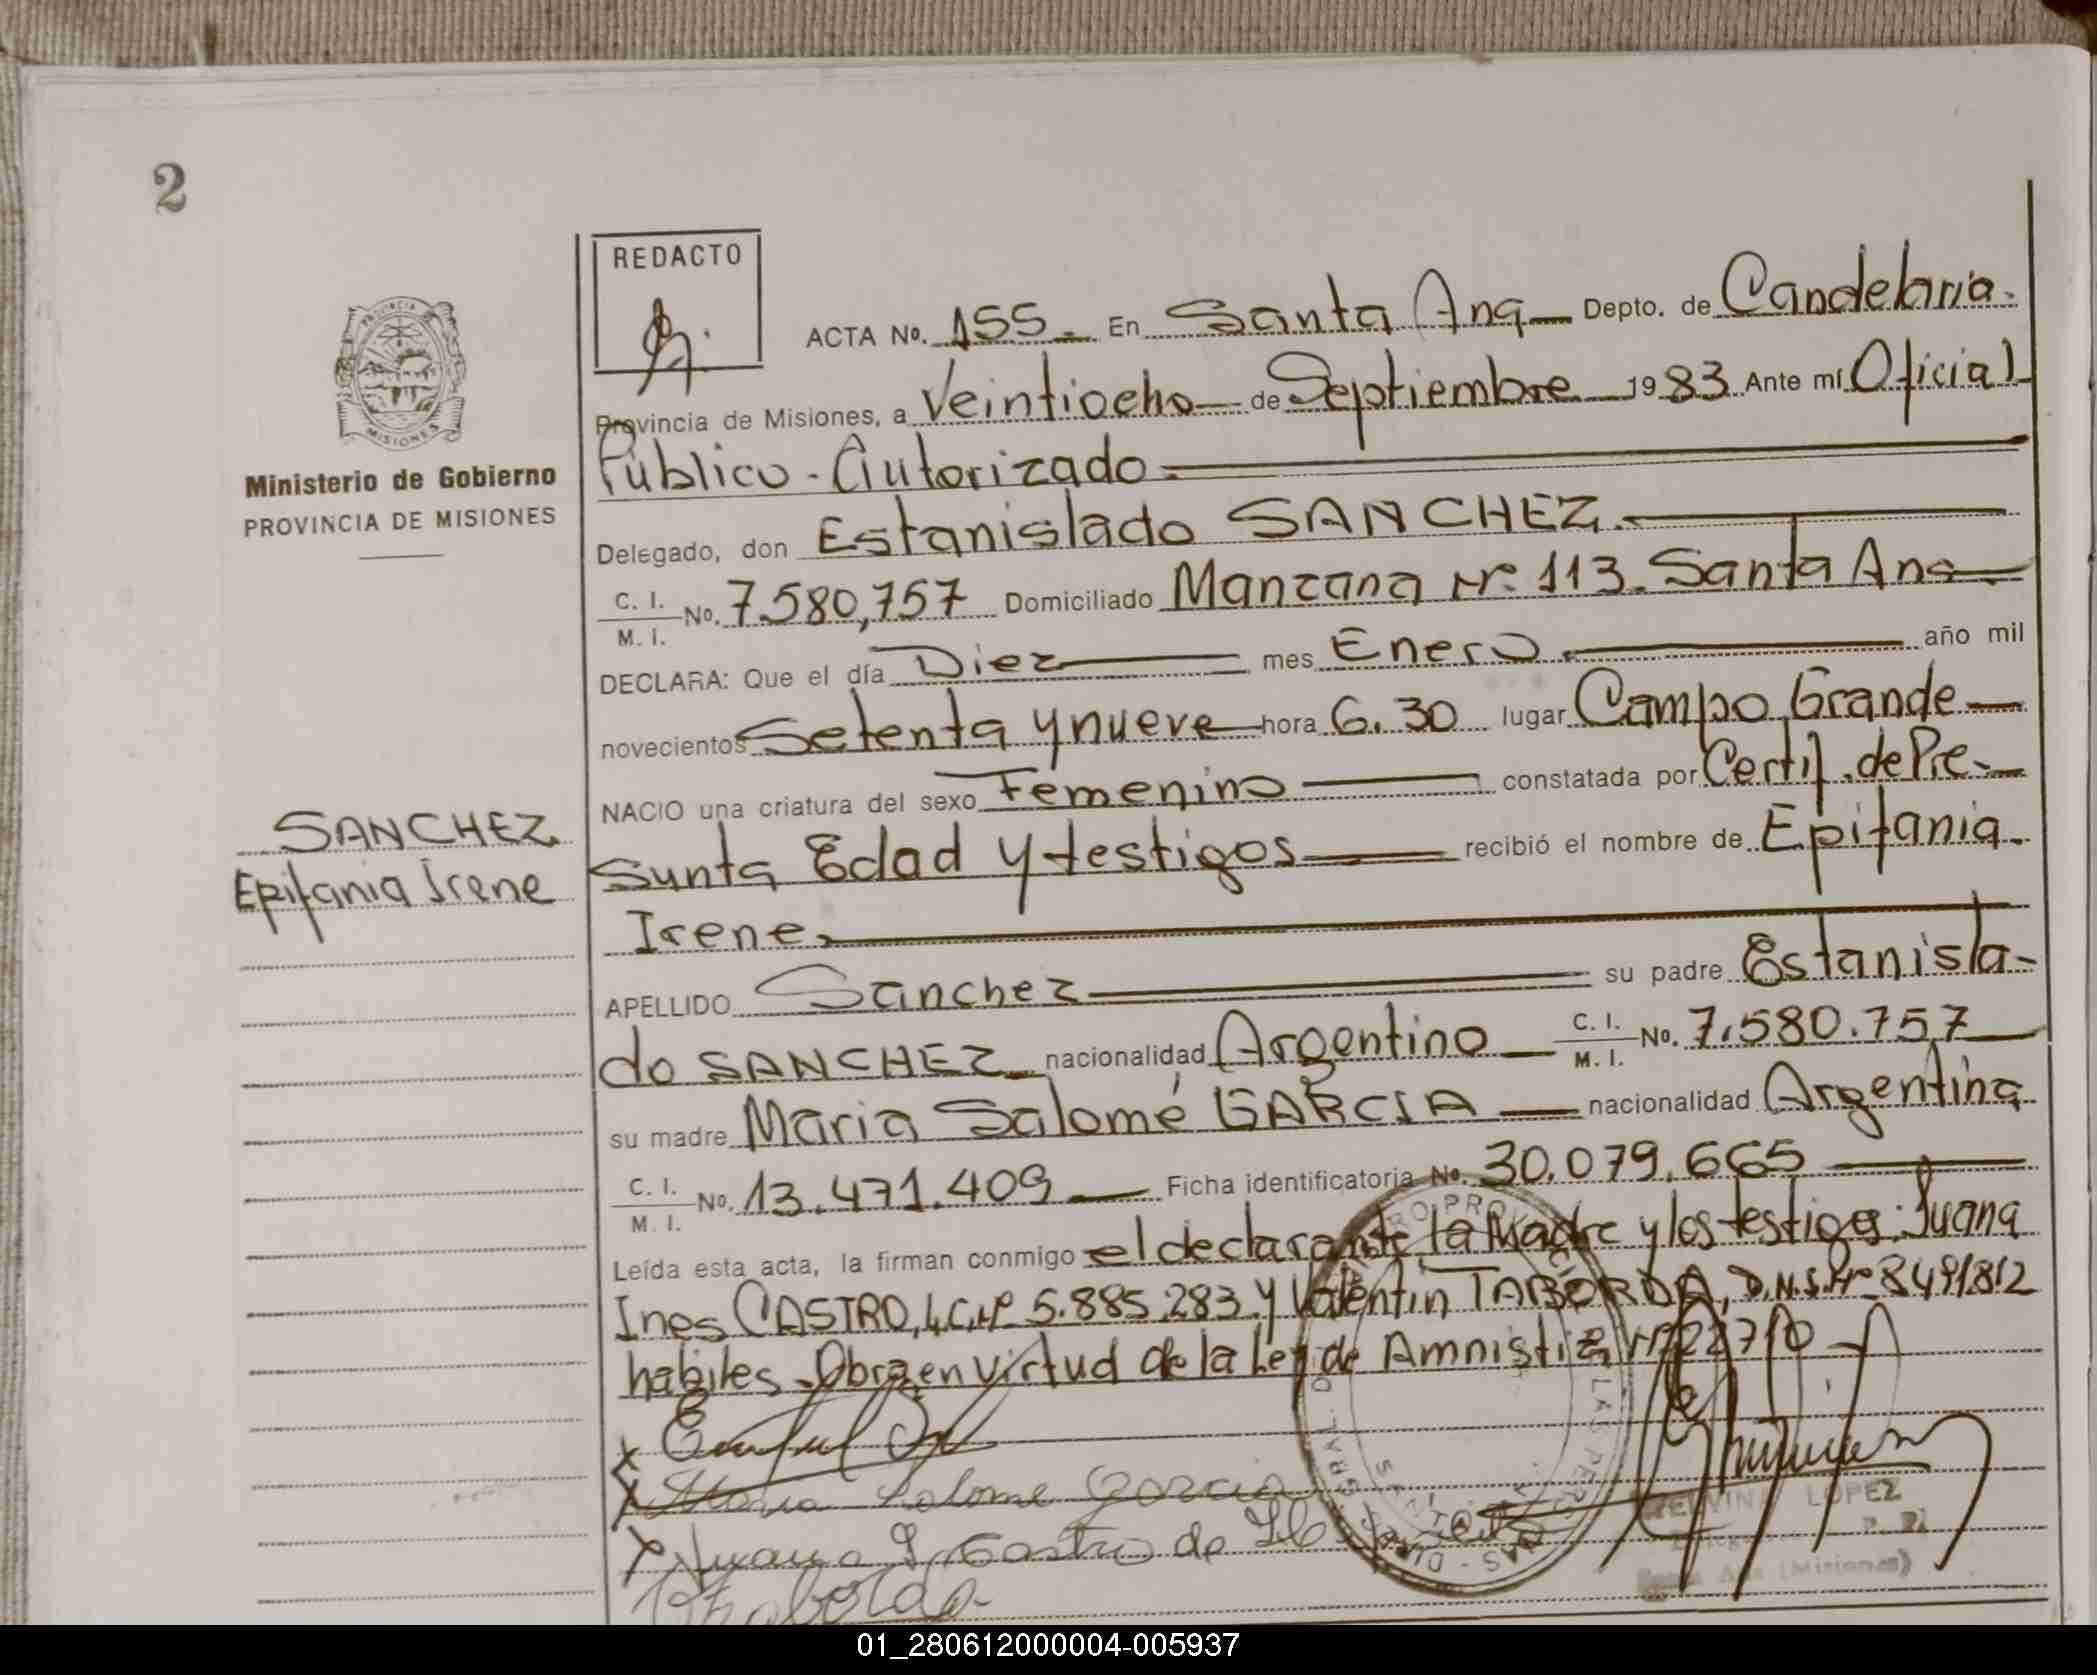 2
REDACTO
ACTA No. 155 En Santa Ana Depto. de Candelaria.
Provincia de Misiones, a Veintiocho de Septiembre 1983 Ante mí Oficial
Público - Autorizado
Delegado, don Estanislado SANCHEZ.
C. I. / M. I. No. 7.580,757 Domiciliado Manzana Nº 113. Santa Ana
DECLARA: Que el día Diez mes Enero año mil
novecientos Setenta y nueve hora 6.30 lugar Campo Grande
NACIO una criatura del sexo Femenino constatada por Certif. de Pre-
sunta Edad y testigos recibió el nombre de Epifania
Irene
APELLIDO Sanchez su padre Estanisla-
do SANCHEZ nacionalidad Argentino C. I. / M. I. No. 7.580.757
su madre Maria Salomé GARCIA nacionalidad Argentina
C. I. / M. I. No. 13.471.409 Ficha identificatoria No. 30.079.665
Leída esta acta, la firman conmigo el declarante, la Madre y los testigos: Juana
Ines CASTRO, L.C. Nº 5.885.283 y Valentin TABORDA, D.N.I. Nº 8491812
habiles. Obra en virtud de la Ley de Amnistia Nº 22710
Maria Salome Garcia
Juana I. Castro de
LOPEZ
(Misiones)
PROVINCIA
MISIONES
Ministerio de Gobierno
PROVINCIA DE MISIONES
SANCHEZ
Epifania Irene
01_280612000004-005937